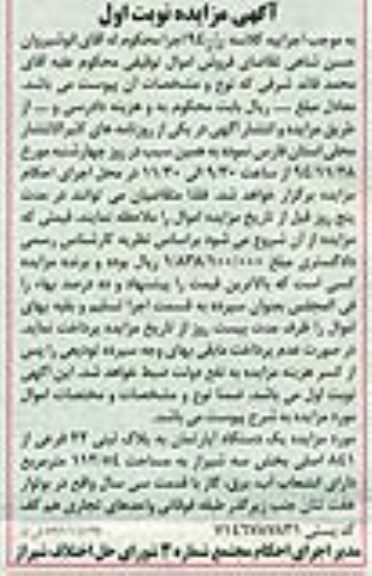 آگهی مزایده نوبت اول
به موجب اجراییه کلاسه ۹۴ اجرا محکوم له آقای انوشیروان
حسن شاهی تقاضای فروش اموال توقیفی محکوم علیه آقای
محمد قائد شرفی که نوع و مشخصات آن پیوست می باشد.
معادل مبلغ --- ریال بابت محکوم به و هزینه دادرسی و ... از
طریق مزایده و انتشار آگهی در یکی از روزنامه های کثیرالانتشار
محلی استان فارس نموده به همین سبب در روز چهارشنبه مورخ
۹۴/۱۱/۲۸ از ساعت ۹/۳۰ الی ۱۱/۳۰ در محل اجرای احکام
مزایده برگزار خواهد شد. لذا متقاضیان می توانند در مدت
پنج روز قبل از تاریخ مزایده اموال را ملاحظه نمایند. قیمتی که
مزایده از آن شروع می شود براساس نظریه کارشناس رسمی
دادگستری مبلغ ۱/۸۳۸/۱۰۰/۰۰۰ ریال بوده و برنده مزایده
کسی است که بالاترین قیمت را پیشنهاد و ده درصد بهاء را
فی المجلس بعنوان سپرده به قسمت اجرا تسلیم و بقیه بهای
اموال را ظرف مدت بیست روز از تاریخ مزایده پرداخت نماید.
در صورت عدم پرداخت مابقی بهای وجه سپرده تودیعی را پس
از کسر هزینه مزایده به نفع دولت ضبط خواهد شد. این آگهی
نوبت اول می باشد. ضمنا نوع و مشخصات و مختصات اموال
مورد مزایده به شرح پیوست می باشد.
مورد مزایده یک دستگاه آپارتمان به پلاک ثبتی ۲۲ فرعی از
۸۴۱ اصلی بخش سه شیراز به مساحت ۱۱۲/۵۴ مترمربع
دارای انشعاب آب، برق، گاز با قدمت سی سال واقع در بولوار
هفت تنان جنب زیرگذر طبقه فوقانی واحدهای تجاری هم کف
کد پستی ۷۱۴۶۷۸۷۸۳۱
مدیر اجرای احکام مجتمع شماره ۳ شورای حل اختلاف شیراز